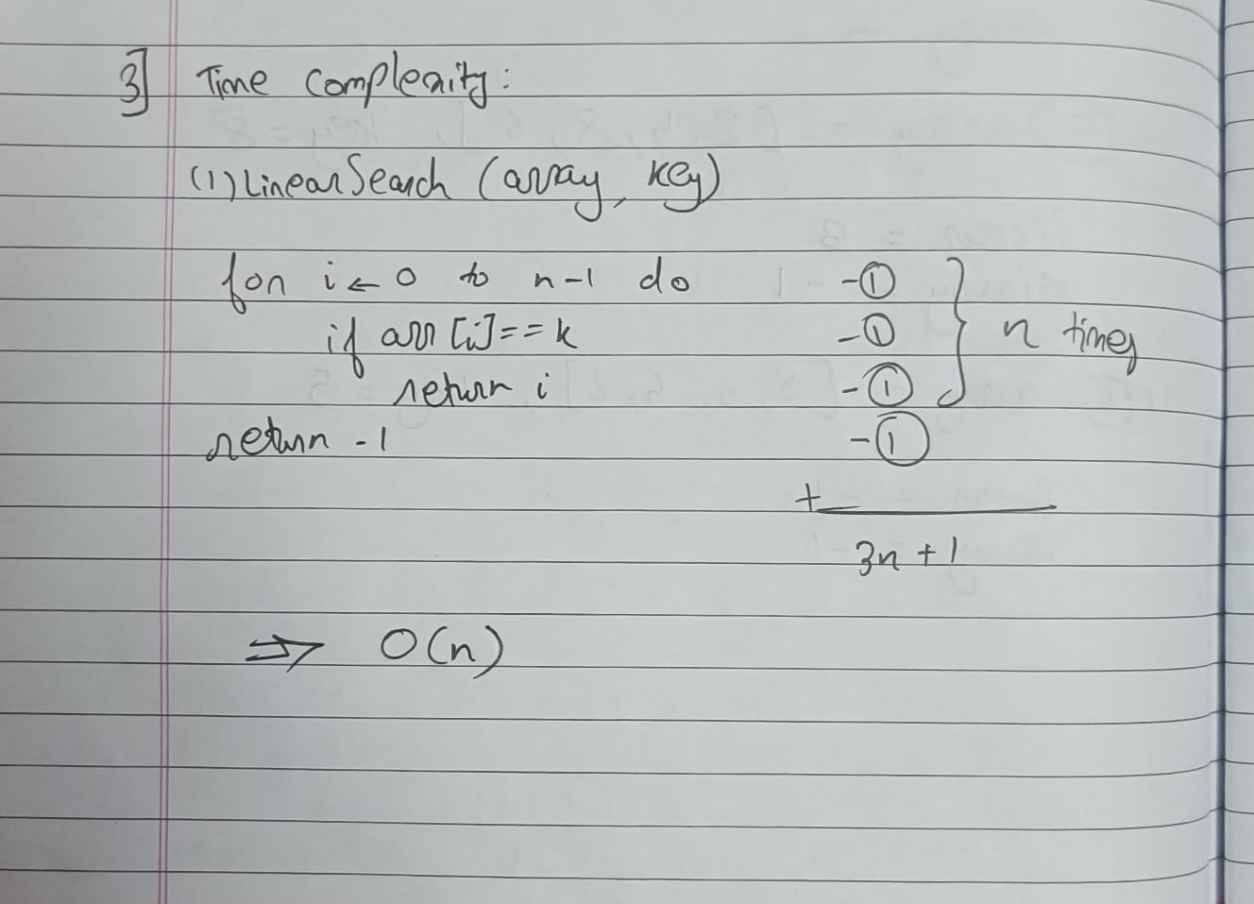 3] Time Complexity:
(1) Linear Search (array, key)
for i ← 0 to n-1 do -①
if arr [i]==k -①
return i -① } n times
return -1 -①
+
3n + 1
⇒ O(n)